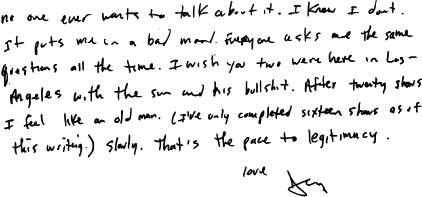 no one ever wants to talk about it. I know I dont.
It puts me in a bad mood. Everyone asks me the same
questions all the time. I wish you two were here in Los-
Angeles with the sun and his bullshit. After twenty shows
I feel like an old man. (I've only completed sixteen shows as of
this writing.) Slowly. That's the pace to legitimacy.
love